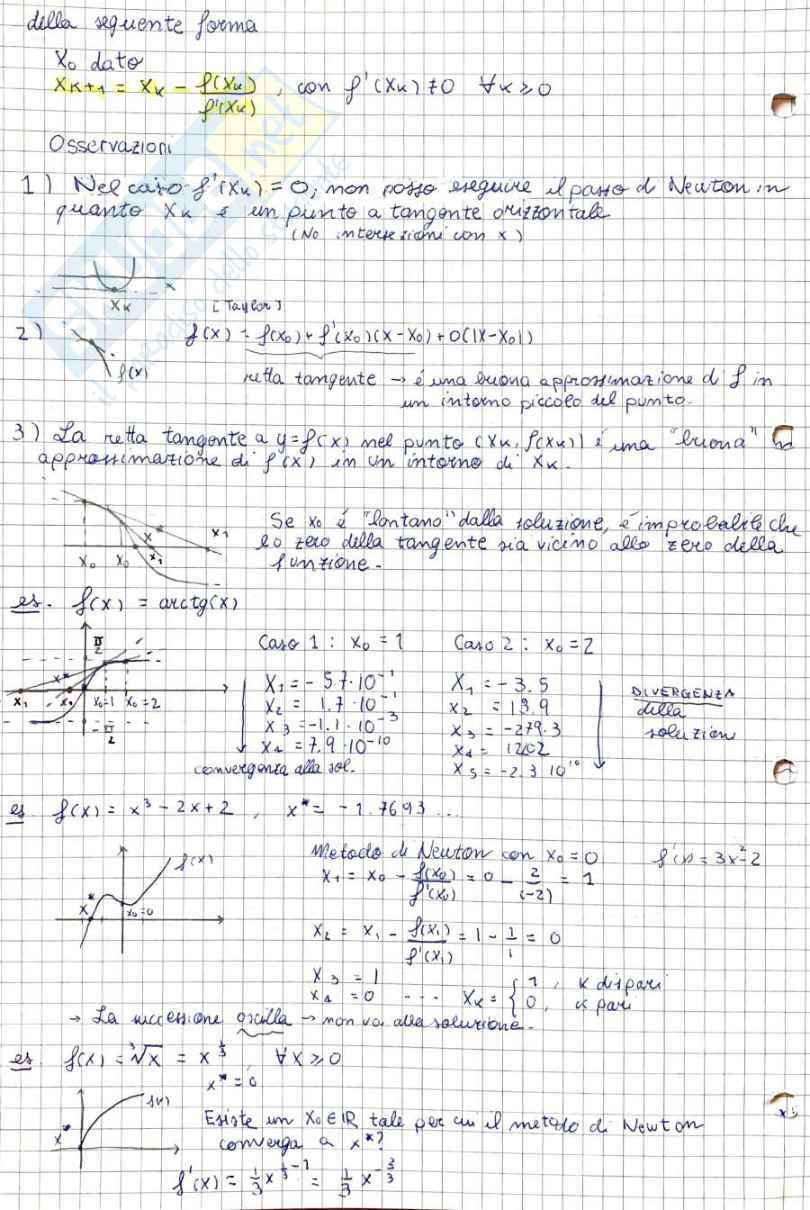 della seguente forma
X₀ dato
Xₖ₊₁ = Xₖ - f(Xₖ)/f'(Xₖ) , con f'(Xₖ) ≠ 0 ∀k ≥ 0
Osservazioni
1) Nel caso f'(Xₖ) = 0, non posso eseguire il passo di Newton in
quanto Xₖ è un punto a tangente orizzontale
(No intersezioni con x)
x
Xₖ
[Taylor]
2) f(x) = f(x₀) + f'(x₀)(x-x₀) + O(|x-x₀|)
f(x)
retta tangente → é una buona approssimazione di f in
un intorno piccolo del punto.
3) La retta tangente a y=f(x) nel punto (Xₖ, f(Xₖ)) è una "buona"
approssimazione di f(x) in un intorno di Xₖ.
X₀ X₀ x x₁ x₁
Se x₀ é "lontano" dalla soluzione, é improbabile che
lo zero della tangente sia vicino allo zero della
funzione.
es. f(x) = arctg(x)
π/2
x* x₁ x₁ x₀=1 x₀=2
-π/2
Caso 1 : x₀ = 1
X₁ = - 5.7·10⁻¹
x₂ = 1.7·10⁻¹
x₃ = -1.1·10⁻³
x₄ = 7.9·10⁻¹⁰
convergenza alla sol.
Caso 2 : x₀ = 2
X₁ = -3.5
x₂ = 13.9
x₃ = -279.3
x₄ = 1202
x₅ = -2.3 10¹⁰
DIVERGENZA
della
soluzion
es f(x) = x³ - 2x + 2 , x* = -1.7693...
f(x)
x* x₀=0
Metodo di Newton con x₀ = 0 f'(x) = 3x²-2
x₁ = x₀ - f(x₀)/f'(x₀) = 0 - 2/(-2) = 1
x₂ = x₁ - f(x₁)/f'(x₁) = 1 - 1/1 = 0
x₃ = 1
x₄ = 0 ... Xₖ = { 1, k dispari
0, k pari
→ La successione oscilla → non va alla soluzione.
es. f(x) = ³√x = x^⅓, ∀x ≥ 0
x* = 0
f(x)
x*
Esiste un X₀ ∈ ℝ tale per cui il metodo di Newton
converga a x*?
f'(x) = ⅓ x^(⅓-1) = ⅓ x^(-3/3)